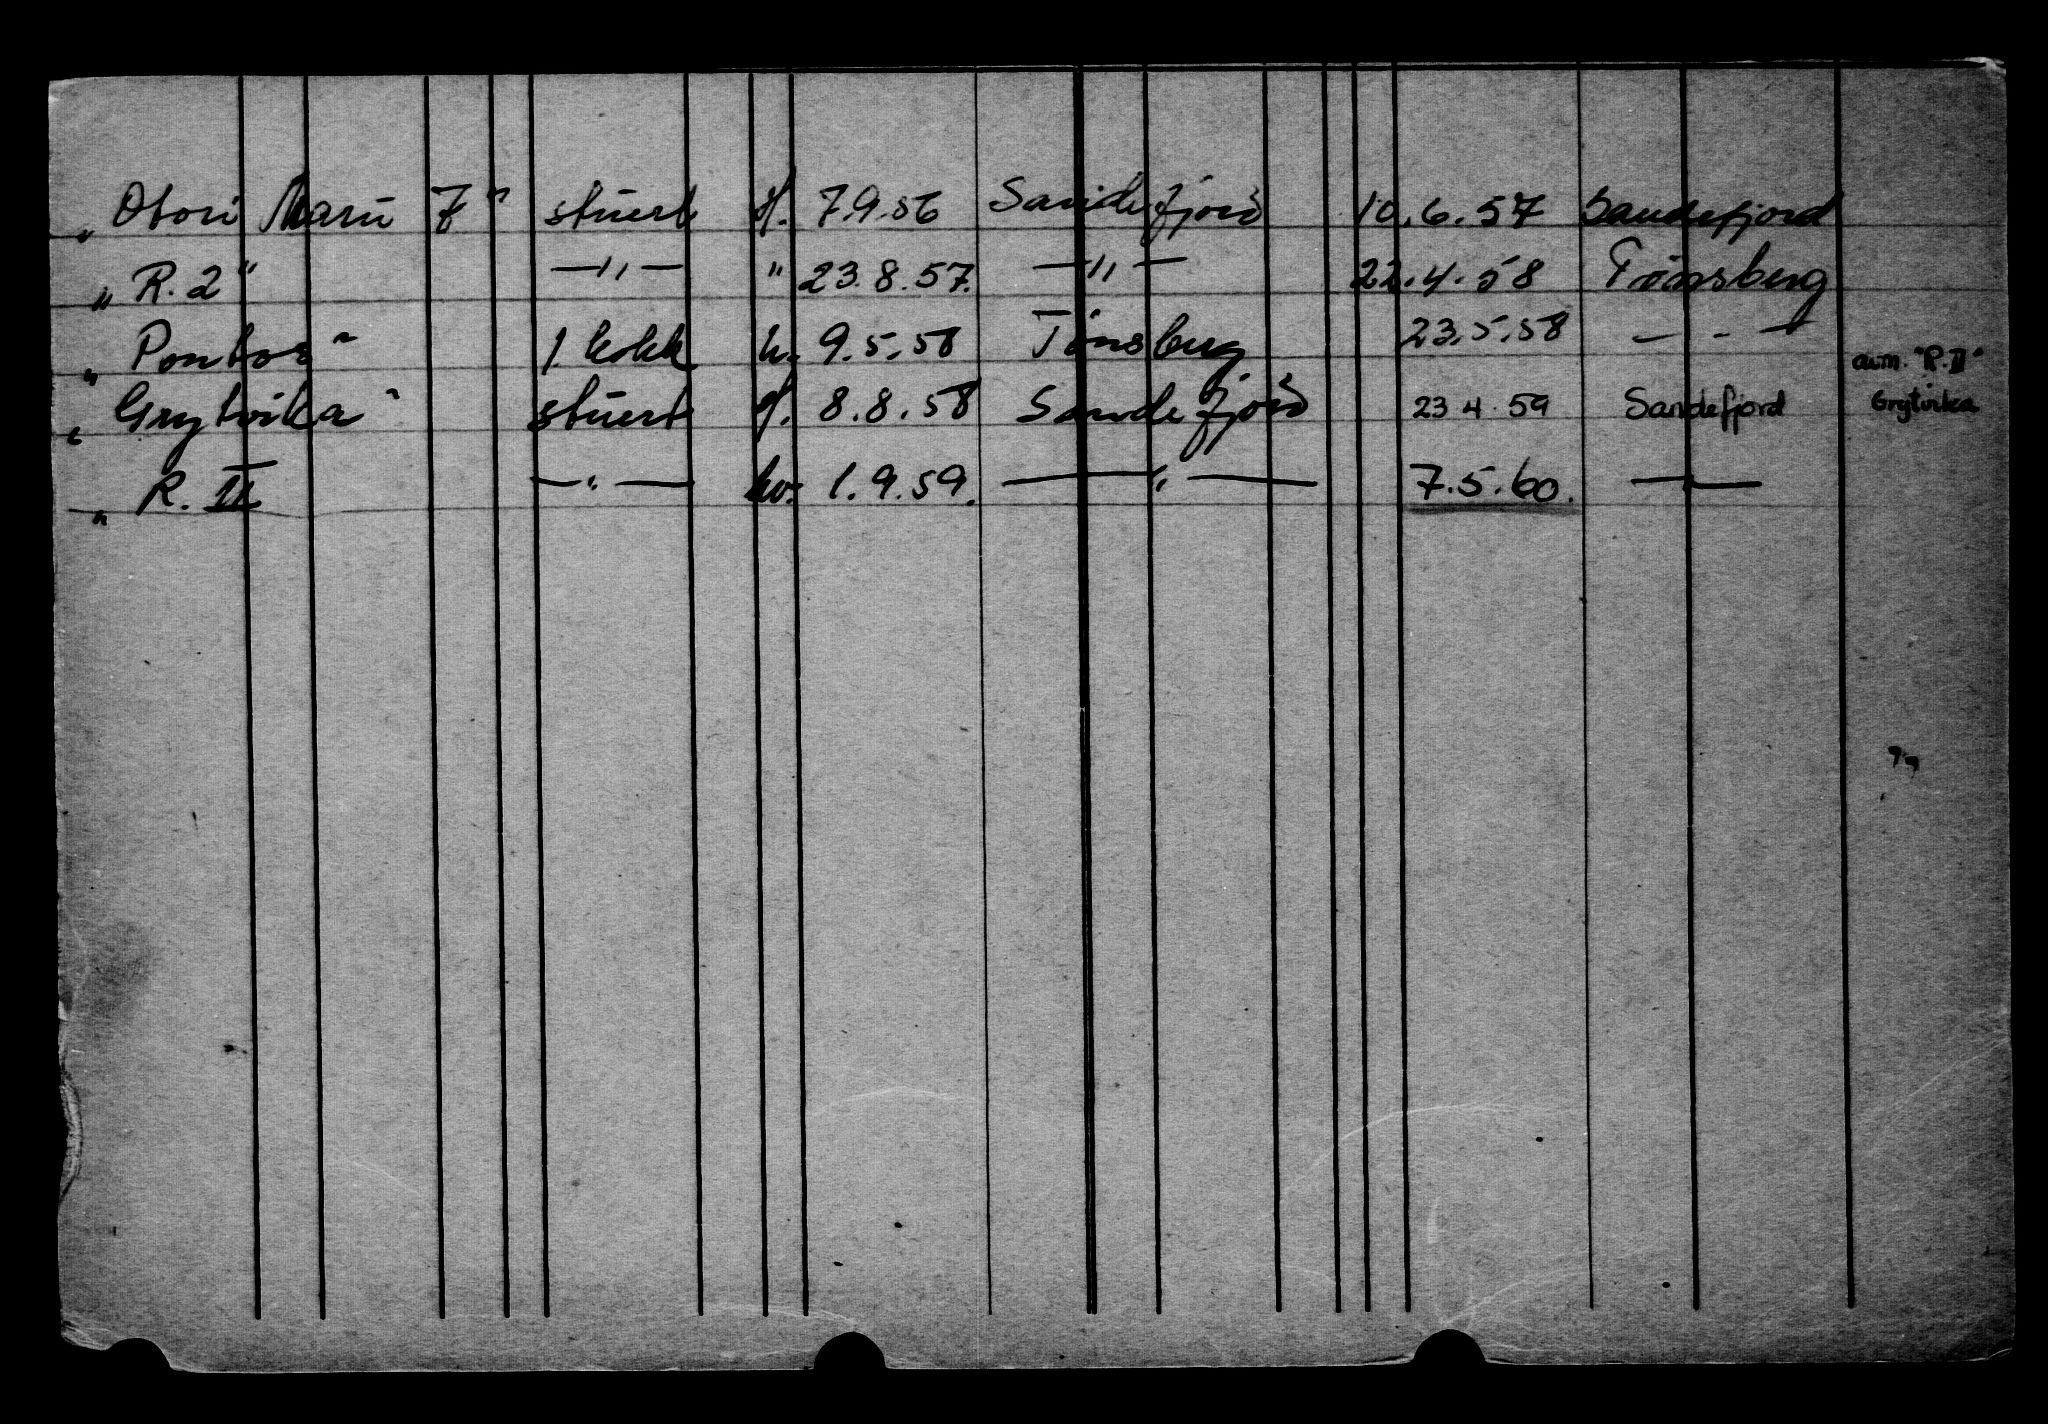 „Otori Maru 7" stuert f. 7.9.56 Sandefjord 10.6.57 Sandefjord
„R. 2" —"— " 23.8.57. —"— 22.4.58 Tönsberg
„Pontos" 1. kokk h. 9.5.58 Tönsberg 23.5.58 — - —
avm. "R.II"
„Grytvika" stuert f. 8.8.58 Sandefjord 23 4 59 Sandefjord Grytvika
„R. II —"— ho. 1.9.59. —"— 7.5.60. —"—